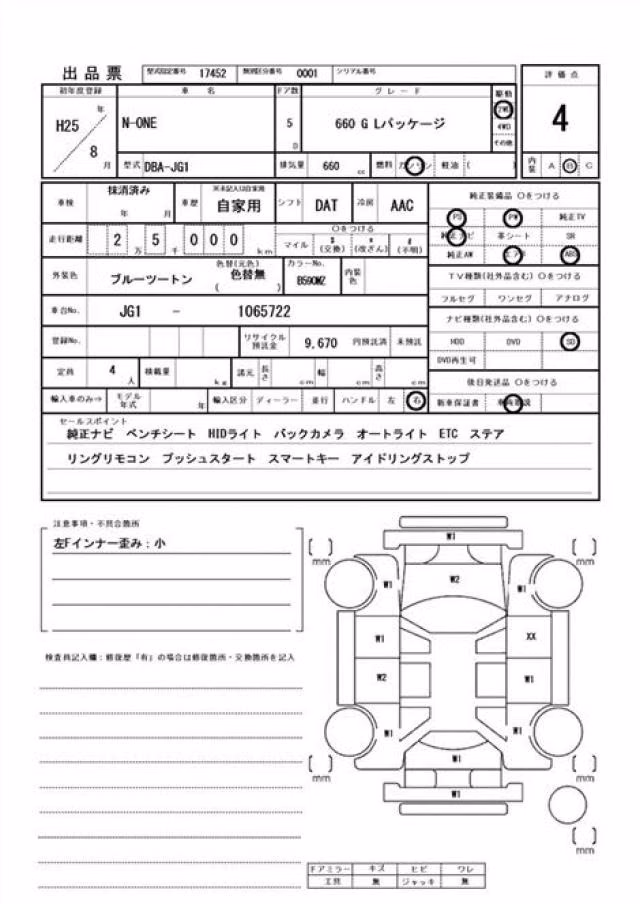 出品票 型式指定番号 17452 類別区分番号 0001 シリアル番号
初年度登録 車名 ドア数 グレード 駆動 評価点
H25年 8月 N-ONE 5D 660 G Lパッケージ 2WD 4WD その他 4
型式 DBA-JG1 排気量 660 cc 燃料 ガソリン 軽油 ( ) 内装 A B C
車検 抹消済み 年 月 車歴 ※未記入は自家用 自家用 シフト DAT 冷房 AAC 純正装備品 ○をつける
PS PW 純正TV
走行距離 2万 5千 000 km ○をつける マイル $(交換) *(改ざん) #(不明) 純正ナビ 革シート SR
純正AW エアB ABS
外装色 ブルーツートン 色替(元色) 色替無 ( ) カラーNo. B590MZ 内装色 TV種類(社外品含む) ○をつける
フルセグ ワンセグ アナログ
車台No. JG1 - 1065722 ナビ種類(社外品含む) ○をつける
登録No. リサイクル預託金 9,670 円預託済 未預託 HDD DVD SD
DVD再生可
定員 4 人 積載量 kg 諸元 長さ cm 幅 cm 高さ cm 後日発送品 ○をつける
輸入車のみ⇒ モデル年式 年 輸入区分 ディーラー 並行 ハンドル 左 右 新車保証書
セールスポイント
純正ナビ ベンチシート HIDライト バックカメラ オートライト ETC ステア
リングリモコン プッシュスタート スマートキー アイドリングストップ
注意事項・不具合箇所
左Fインナー歪み:小
検査員記入欄:修復歴「有」の場合は修復箇所・交換箇所を記入
W1
[ ] mm [ ] mm
W2
W1 W1
W1 XX
W2 W1
W1 W1
W1
[ ] mm [ ] mm
W1
[ ] mm
ドアミラー キズ ヒビ ワレ
工具 無 ジャッキ 無